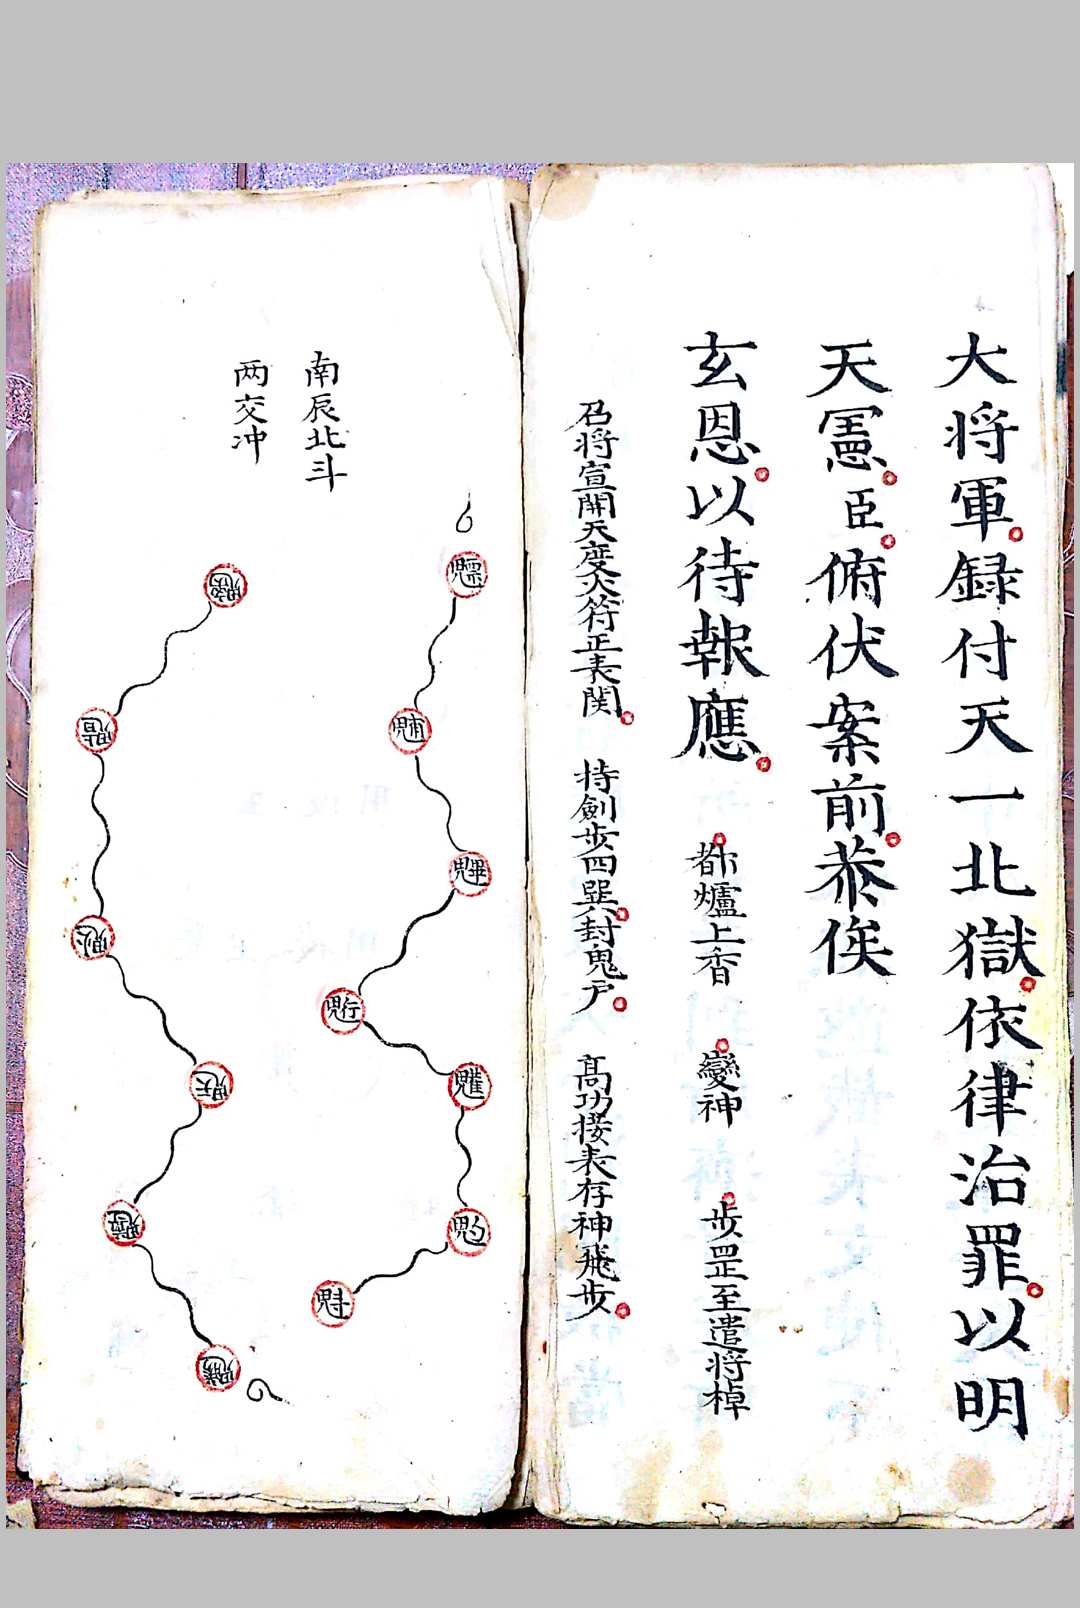 大将軍録付天一北獄依律治罪以明
天憲臣俯伏案前恭俟
玄恩以待報應 都爐上香 變神 步罡至遣将棹
召将宣開天度火符正表関 持劍步四巽封鬼户 髙功接表存神飛步
南辰北斗
两交冲